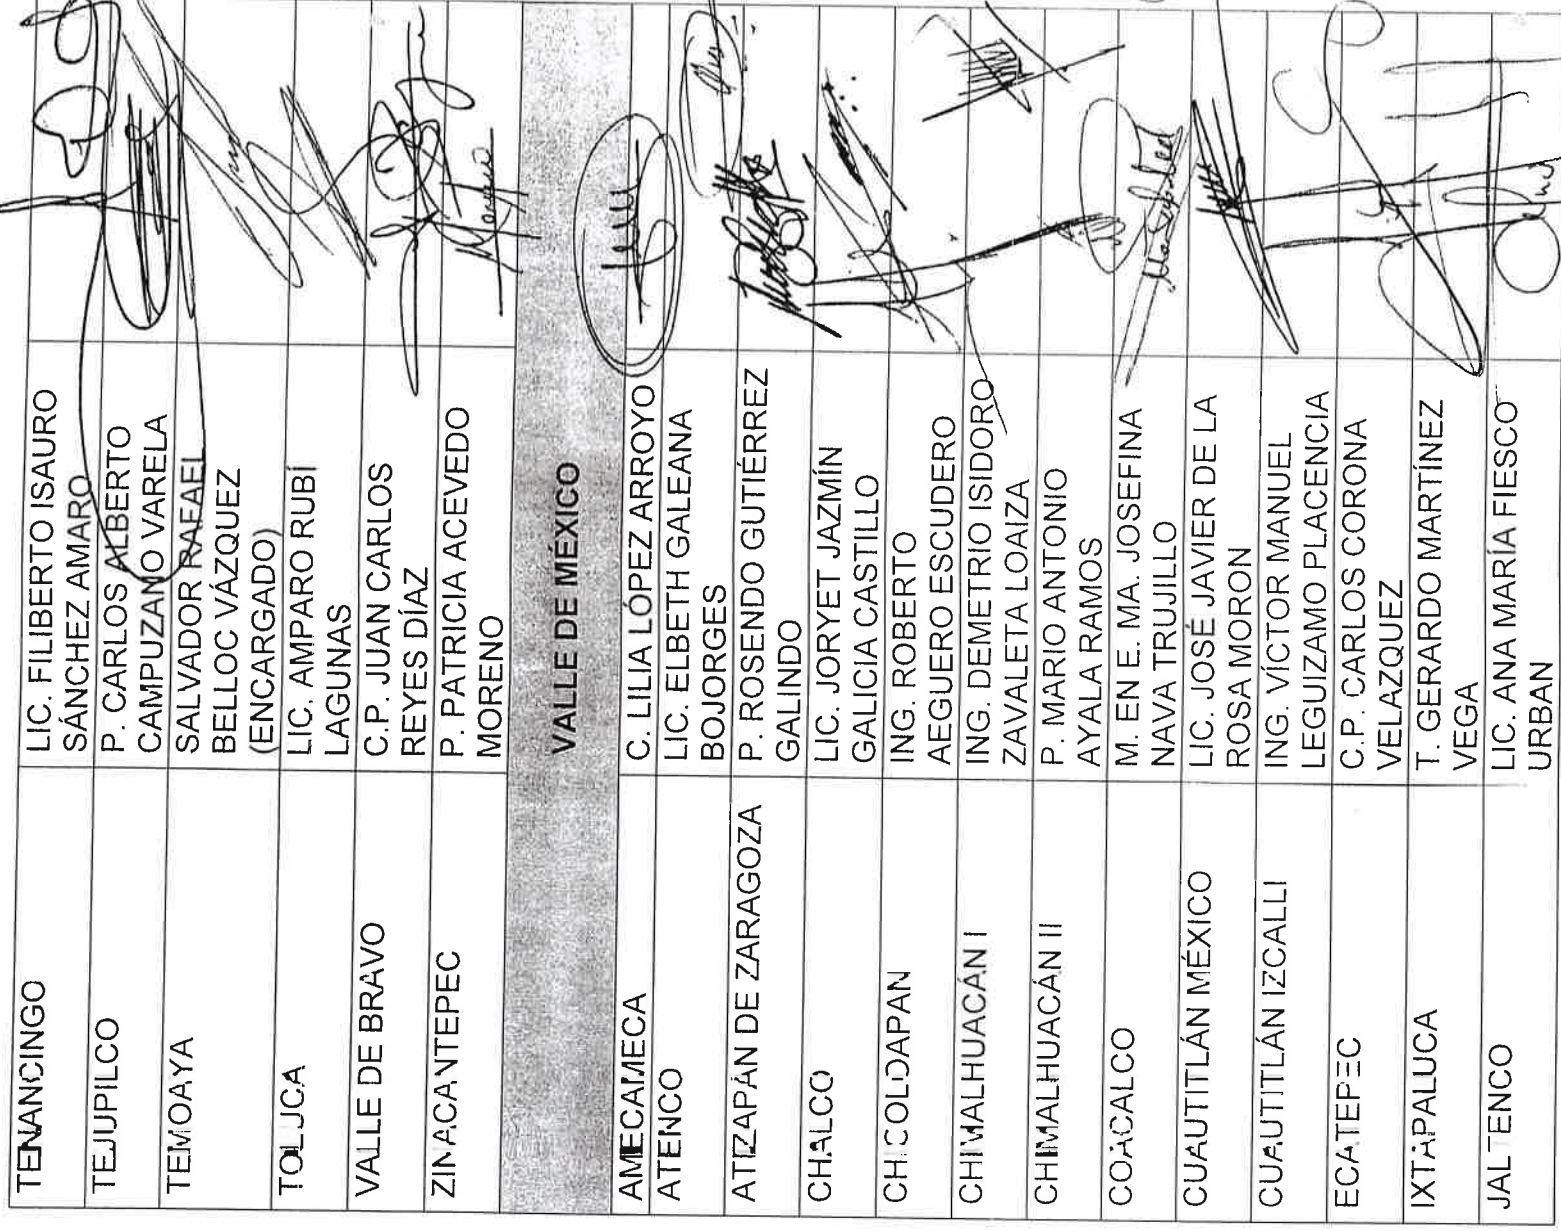 TENANCINGO
LIC. FILIBERTO ISAURO
SÁNCHEZ AMARO
TEJUPILCO
P. CARLOS ALBERTO
CAMPUZANO VARELA
TEMOAYA
SALVADOR RAFAEL
BELLOC VÁZQUEZ
(ENCARGADO)
TOLUCA
LIC. AMPARO RUBÍ
LAGUNAS
VALLE DE BRAVO
C.P. JUAN CARLOS
REYES DÍAZ
ZINACANTEPEC
P. PATRICIA ACEVEDO
MORENO
VALLE DE MÉXICO
AMECAMECA
C. LILIA LÓPEZ ARROYO
ATENCO
LIC. ELBETH GALEANA
BOJORGES
ATIZAPÁN DE ZARAGOZA
P. ROSENDO GUTIÉRREZ
GALINDO
CHALCO
LIC. JORYET JAZMÍN
GALICIA CASTILLO
CHICOLOAPAN
ING. ROBERTO
AEGUERO ESCUDERO
CHIMALHUACÁN I
ING. DEMETRIO ISIDORO
ZAVALETA LOAIZA
CHIMALHUACÁN II
P. MARIO ANTONIO
AYALA RAMOS
COACALCO
M. EN E. MA. JOSEFINA
NAVA TRUJILLO
CUAUTITLÁN MÉXICO
LIC. JOSÉ JAVIER DE LA
ROSA MORON
CUAUTITLÁN IZCALLI
ING. VÍCTOR MANUEL
LEGUIZAMO PLACENCIA
ECATEPEC
C.P. CARLOS CORONA
VELAZQUEZ
IXTAPALUCA
T. GERARDO MARTÍNEZ
VEGA
JALTENCO
LIC. ANA MARÍA FIESCO
URBAN